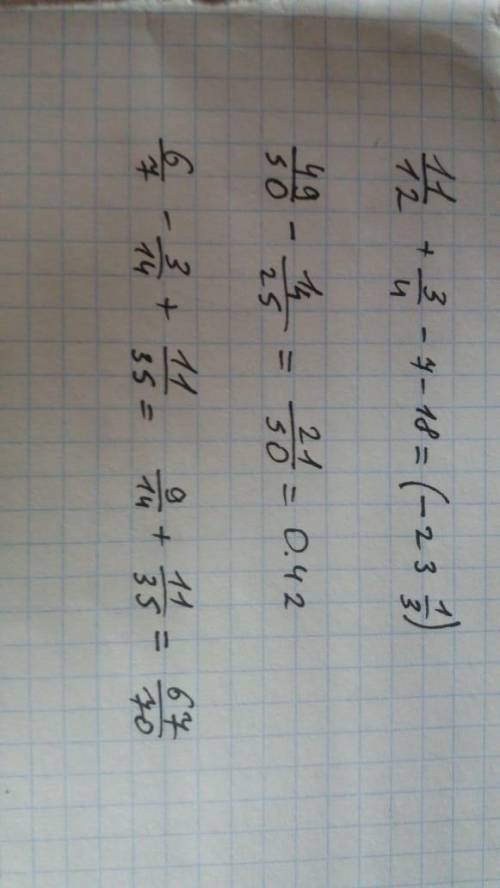 11/12 + 3/4 - 7 - 18 = (-23 1/3)
49/50 - 14/25 = 21/50 = 0.42
6/7 - 3/14 + 11/35 = 9/14 + 11/35 = 67/70